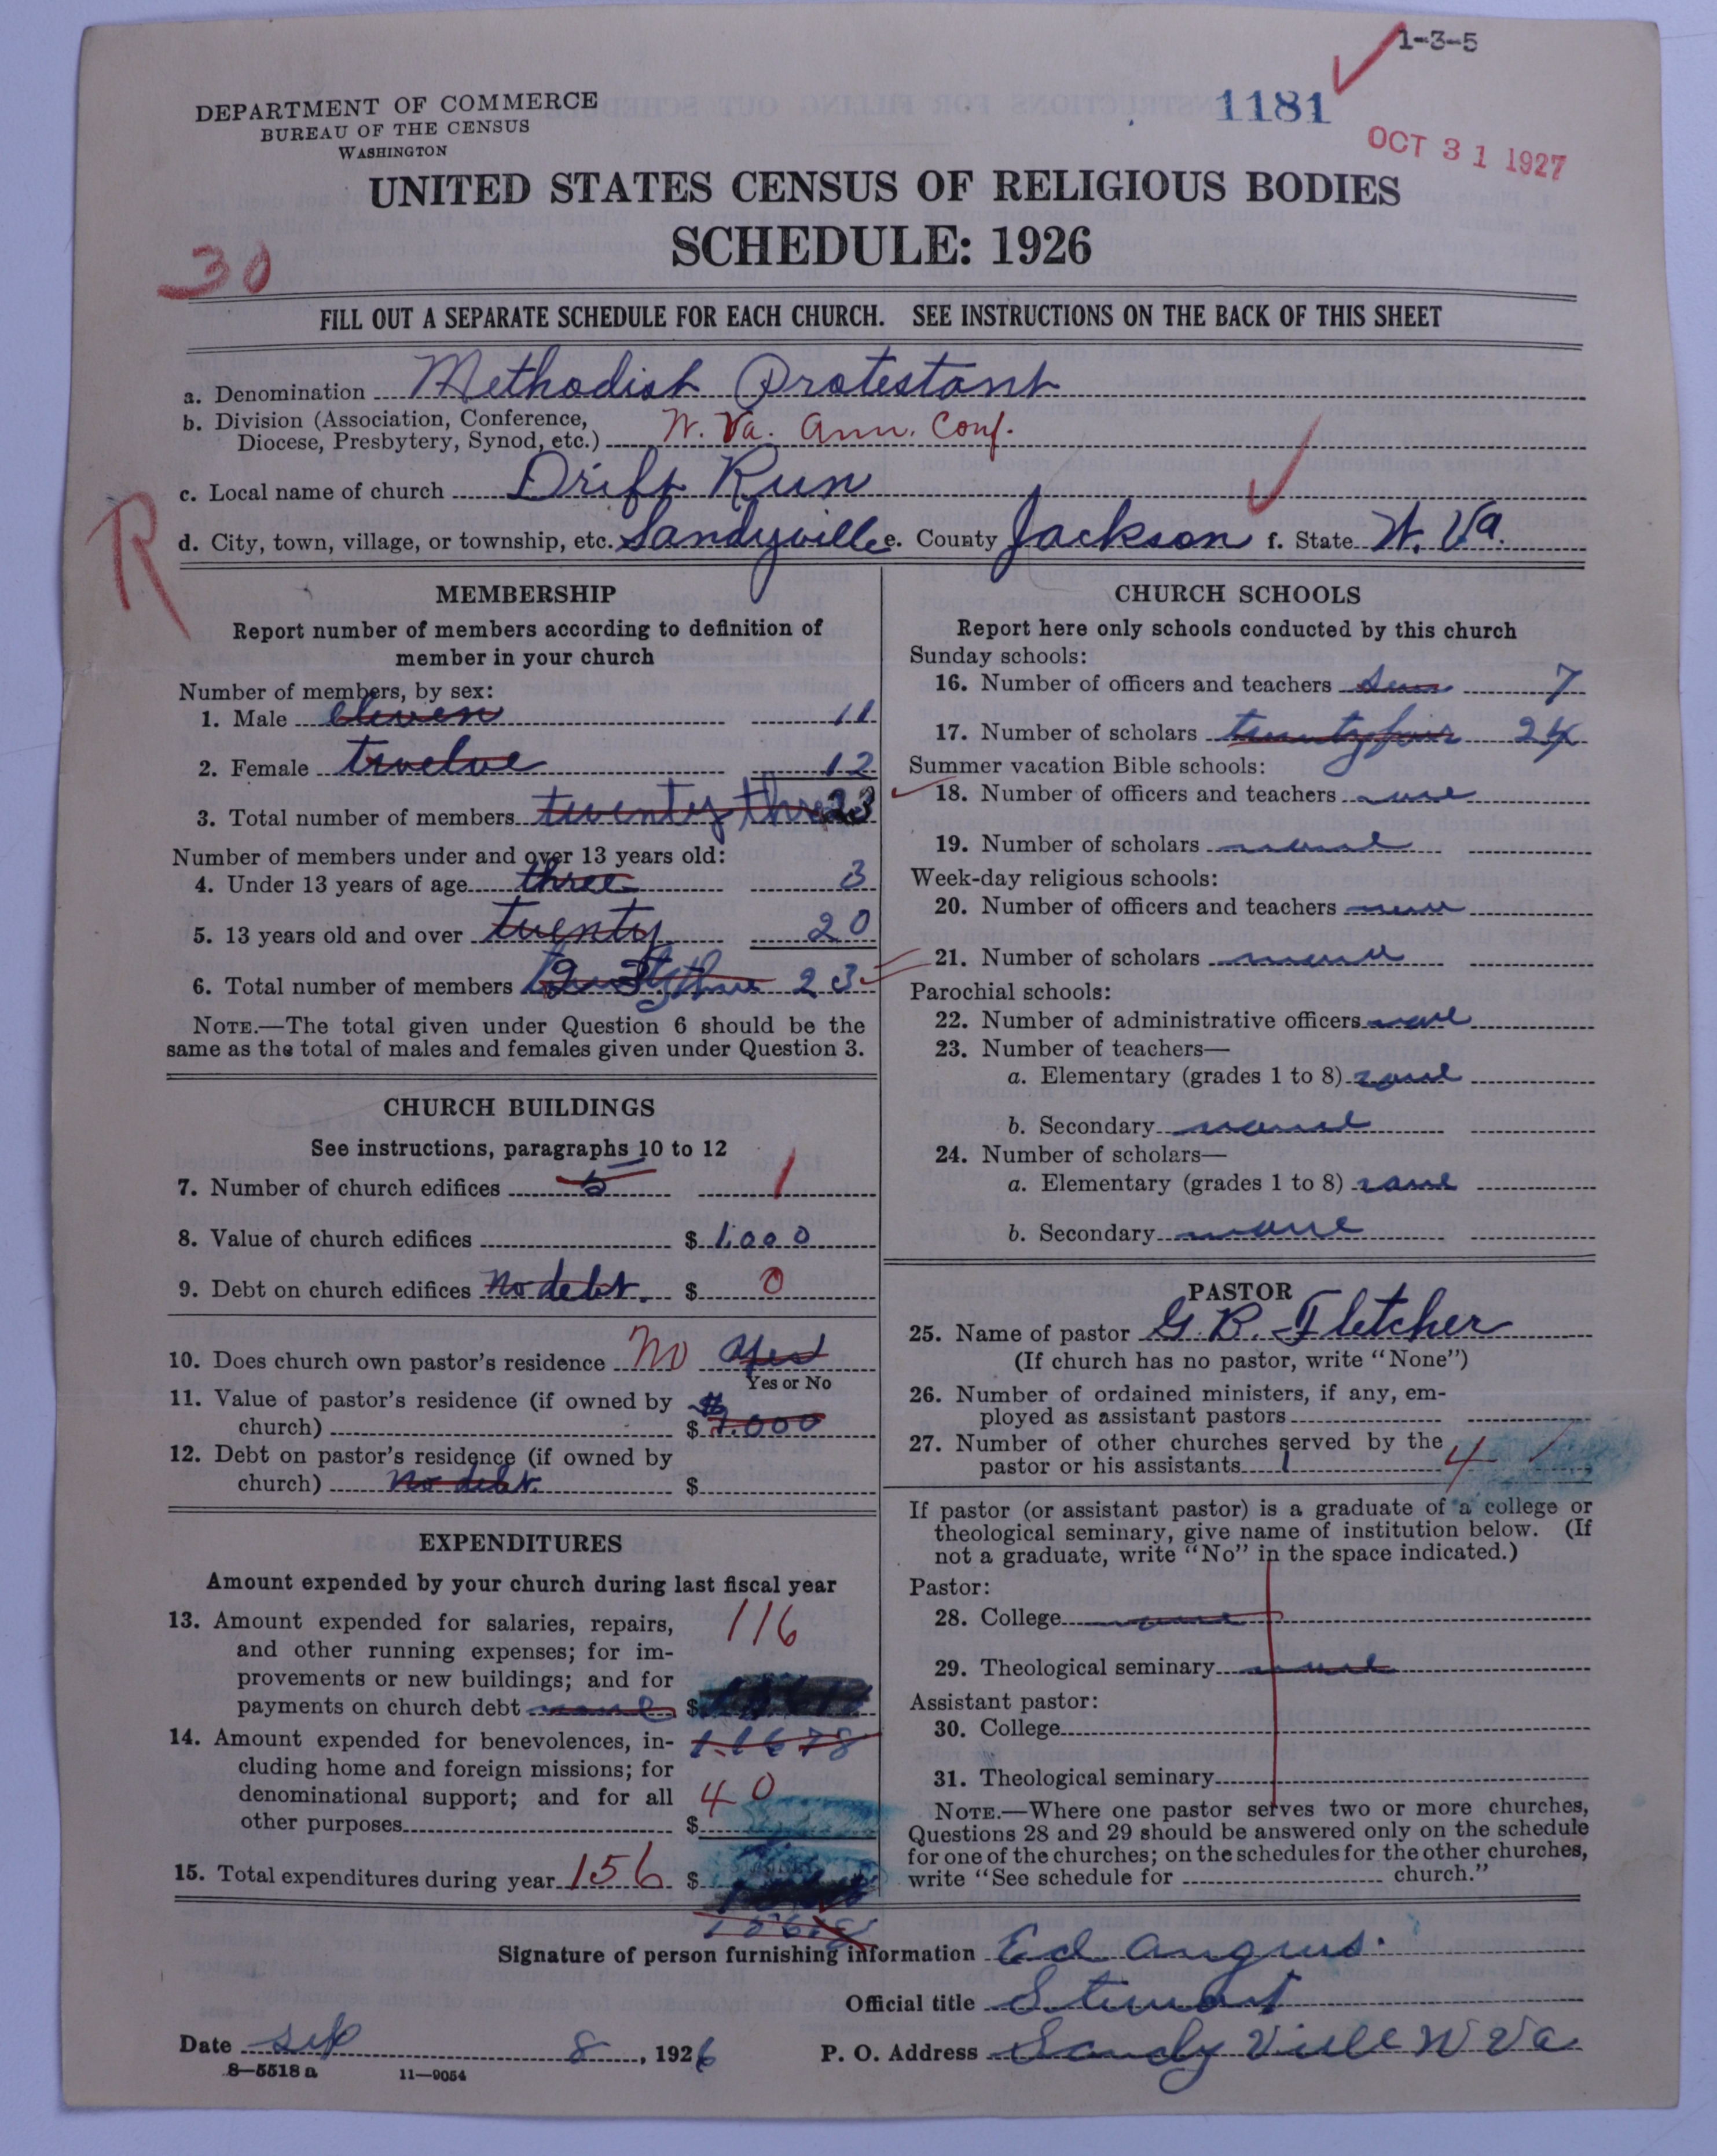 1-3-5
1181
OCT 31 1927
DEPARTMENT OF COMMERCE
BUREAU OF THE CENSUS
WASHINGTON
UNITED STATES CENSUS OF RELIGIOUS BODIES
SCHEDULE: 1926
30
FILL OUT A SEPARATE SCHEDULE FOR EACH CHURCH. SEE INSTRUCTIONS ON THE BACK OF THIS SHEET
a. Denomination Methodist Protestant
b. Division (Association, Conference,
Diocese, Presbytery, Synod, etc.) W. Va. Ann. Conf.
c. Local name of church Drift Run
R
d. City, town, village, or township, etc. Sandyville e. County Jackson f. State W. Va.
MEMBERSHIP
Report number of members according to definition of
member in your church
Number of members, by sex:
1. Male eleven 11
2. Female twelve 12
3. Total number of members twenty three 23
Number of members under and over 13 years old:
4. Under 13 years of age three 3
5. 13 years old and over twenty 20
6. Total number of members 23
NOTE.—The total given under Question 6 should be the
same as the total of males and females given under Question 3.
CHURCH BUILDINGS
See instructions, paragraphs 10 to 12
7. Number of church edifices 5 1
8. Value of church edifices $ 1.000
9. Debt on church edifices no debt. $ 0
10. Does church own pastor's residence No yes
Yes or No
11. Value of pastor's residence (if owned by
church) $
12. Debt on pastor's residence (if owned by
church) no debt. $
EXPENDITURES
Amount expended by your church during last fiscal year
13. Amount expended for salaries, repairs,
and other running expenses; for im-
provements or new buildings; and for
payments on church debt none $ 116
14. Amount expended for benevolences, in-
cluding home and foreign missions; for
denominational support; and for all
other purposes $ 40
15. Total expenditures during year 156 $
CHURCH SCHOOLS
Report here only schools conducted by this church
Sunday schools:
16. Number of officers and teachers 7
17. Number of scholars twenty four 24
Summer vacation Bible schools:
18. Number of officers and teachers none
19. Number of scholars none
Week-day religious schools:
20. Number of officers and teachers none
21. Number of scholars none
Parochial schools:
22. Number of administrative officers none
23. Number of teachers—
a. Elementary (grades 1 to 8) none
b. Secondary none
24. Number of scholars—
a. Elementary (grades 1 to 8) none
b. Secondary none
PASTOR
25. Name of pastor G. B. Fletcher
(If church has no pastor, write "None")
26. Number of ordained ministers, if any, em-
ployed as assistant pastors
27. Number of other churches served by the
pastor or his assistants 1 4
If pastor (or assistant pastor) is a graduate of a college or
theological seminary, give name of institution below. (If
not a graduate, write "No" in the space indicated.)
Pastor:
28. College none
29. Theological seminary none
Assistant pastor:
30. College
31. Theological seminary
NOTE.—Where one pastor serves two or more churches,
Questions 28 and 29 should be answered only on the schedule
for one of the churches; on the schedules for the other churches,
write "See schedule for church."
Signature of person furnishing information Ed Angus.
Official title Stewart
Date Sep 8, 1926 P. O. Address Sandy Ville W Va
8—5518 a 11—9054